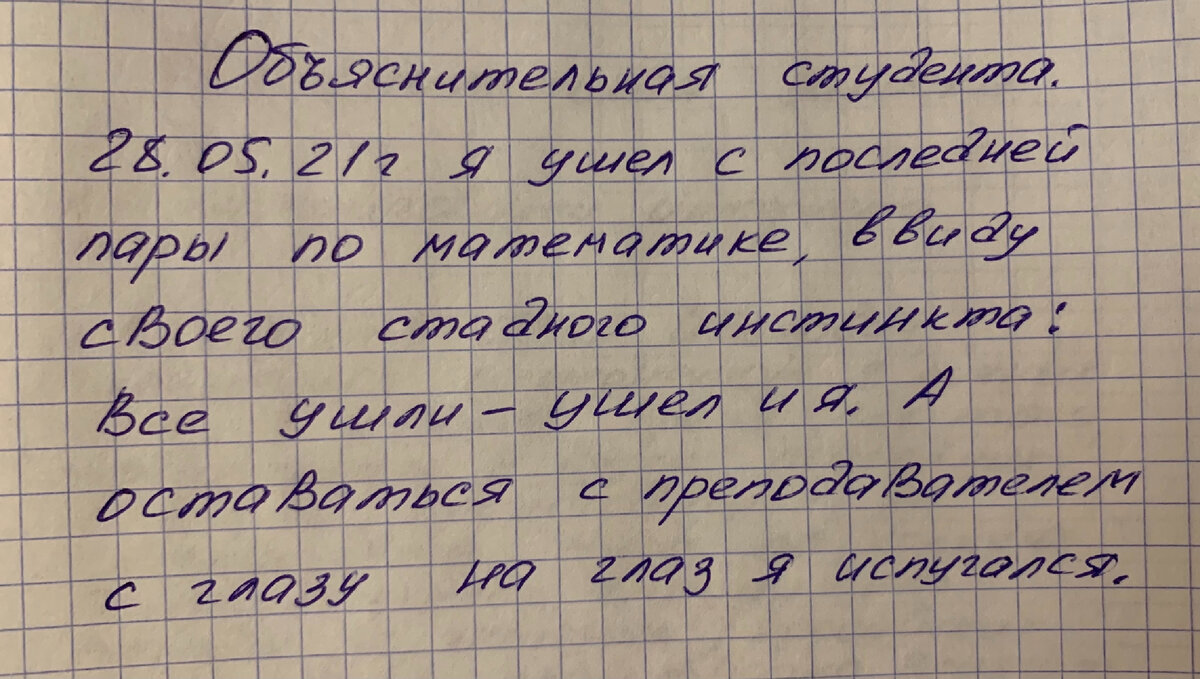 Объяснительная студента.
28.05.21г я ушел с последней
пары по математике, ввиду
своего стадного инстинкта:
Все ушли – ушел и я. А
оставаться с преподавателем
с глазу на глаз я испугался.